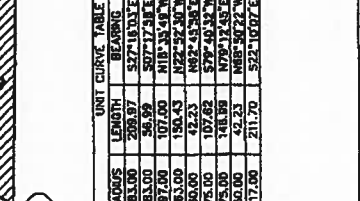 UNIT CURVE TABLE
ADIUS LENGTH BEARING
83.00 209.97 S27°16'03"E
83.00 56.99 S07°17'58"E
97.00 107.00
63.00 150.43 N22°52'30"W
0.00 42.23
75.00 107.62
75.00 148.99 N79°12'45"E
0.00 42.23 N68°50'22"W
17.00 211.70 S22°16'07"E